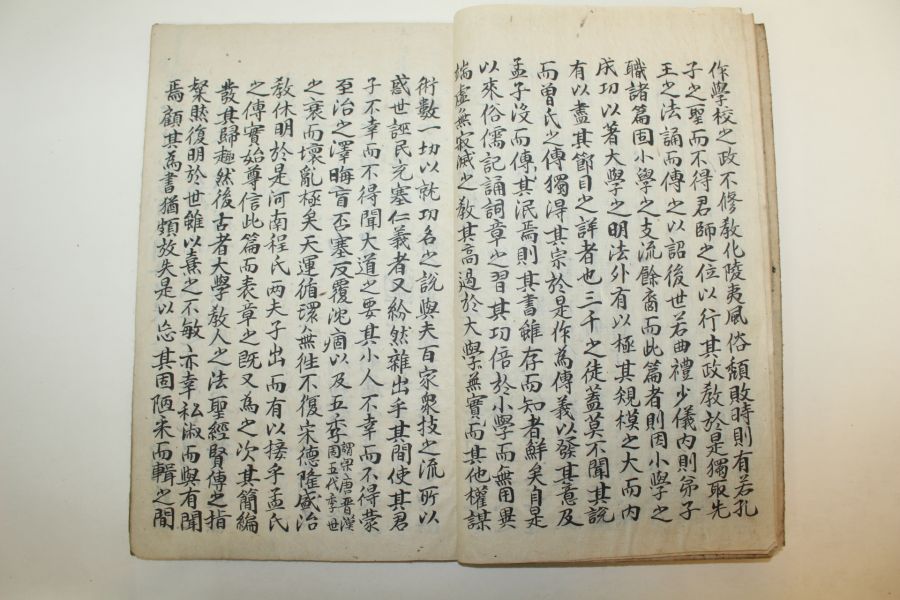 作學校之政不修教化陵夷風俗頹敗時則有若孔
子之聖而不得君師之位以行其政教於是獨取先
王之法誦而傳之以詔後世若曲禮少儀內則弟子
職諸篇固小學之支流餘裔而此篇者則因小學之
成功以著大學之明法外有以極其規模之大而內
有以盡其節目之詳者也三千之徒蓋莫不聞其說
而曾氏之傳獨淂其宗於是作為傳義以發其意及
孟子沒而傳其泯焉則其書雖存而知者鮮矣自是
以來俗儒記誦詞章之習其功倍於小學而無用異
端虛無寂滅之教其高過於大學無實而其他權謀
術數一切以就功名之說與夫百家衆技之流所以
惑世誣民充塞仁義者又紛然雜出乎其間使其君
子不幸而不得聞大道之要其小人不幸而不得蒙
至治之澤晦盲否塞反覆沈痼以及五季謂宋唐晋漢周五代季世
之衰而壞亂極矣天運循環無徃不復宋德隆盛治
教休明於是河南程氏両夫子出而有以接乎孟氏
之傳實始尊信此篇而表章之既又為之次其簡編
發其歸趣然後古者大學教人之法聖經賢傳之指
粲然復明於世雖以熹之不敏亦幸私淑而與有聞
焉顧其為書猶頗放失是以忘其固陋采而輯之間